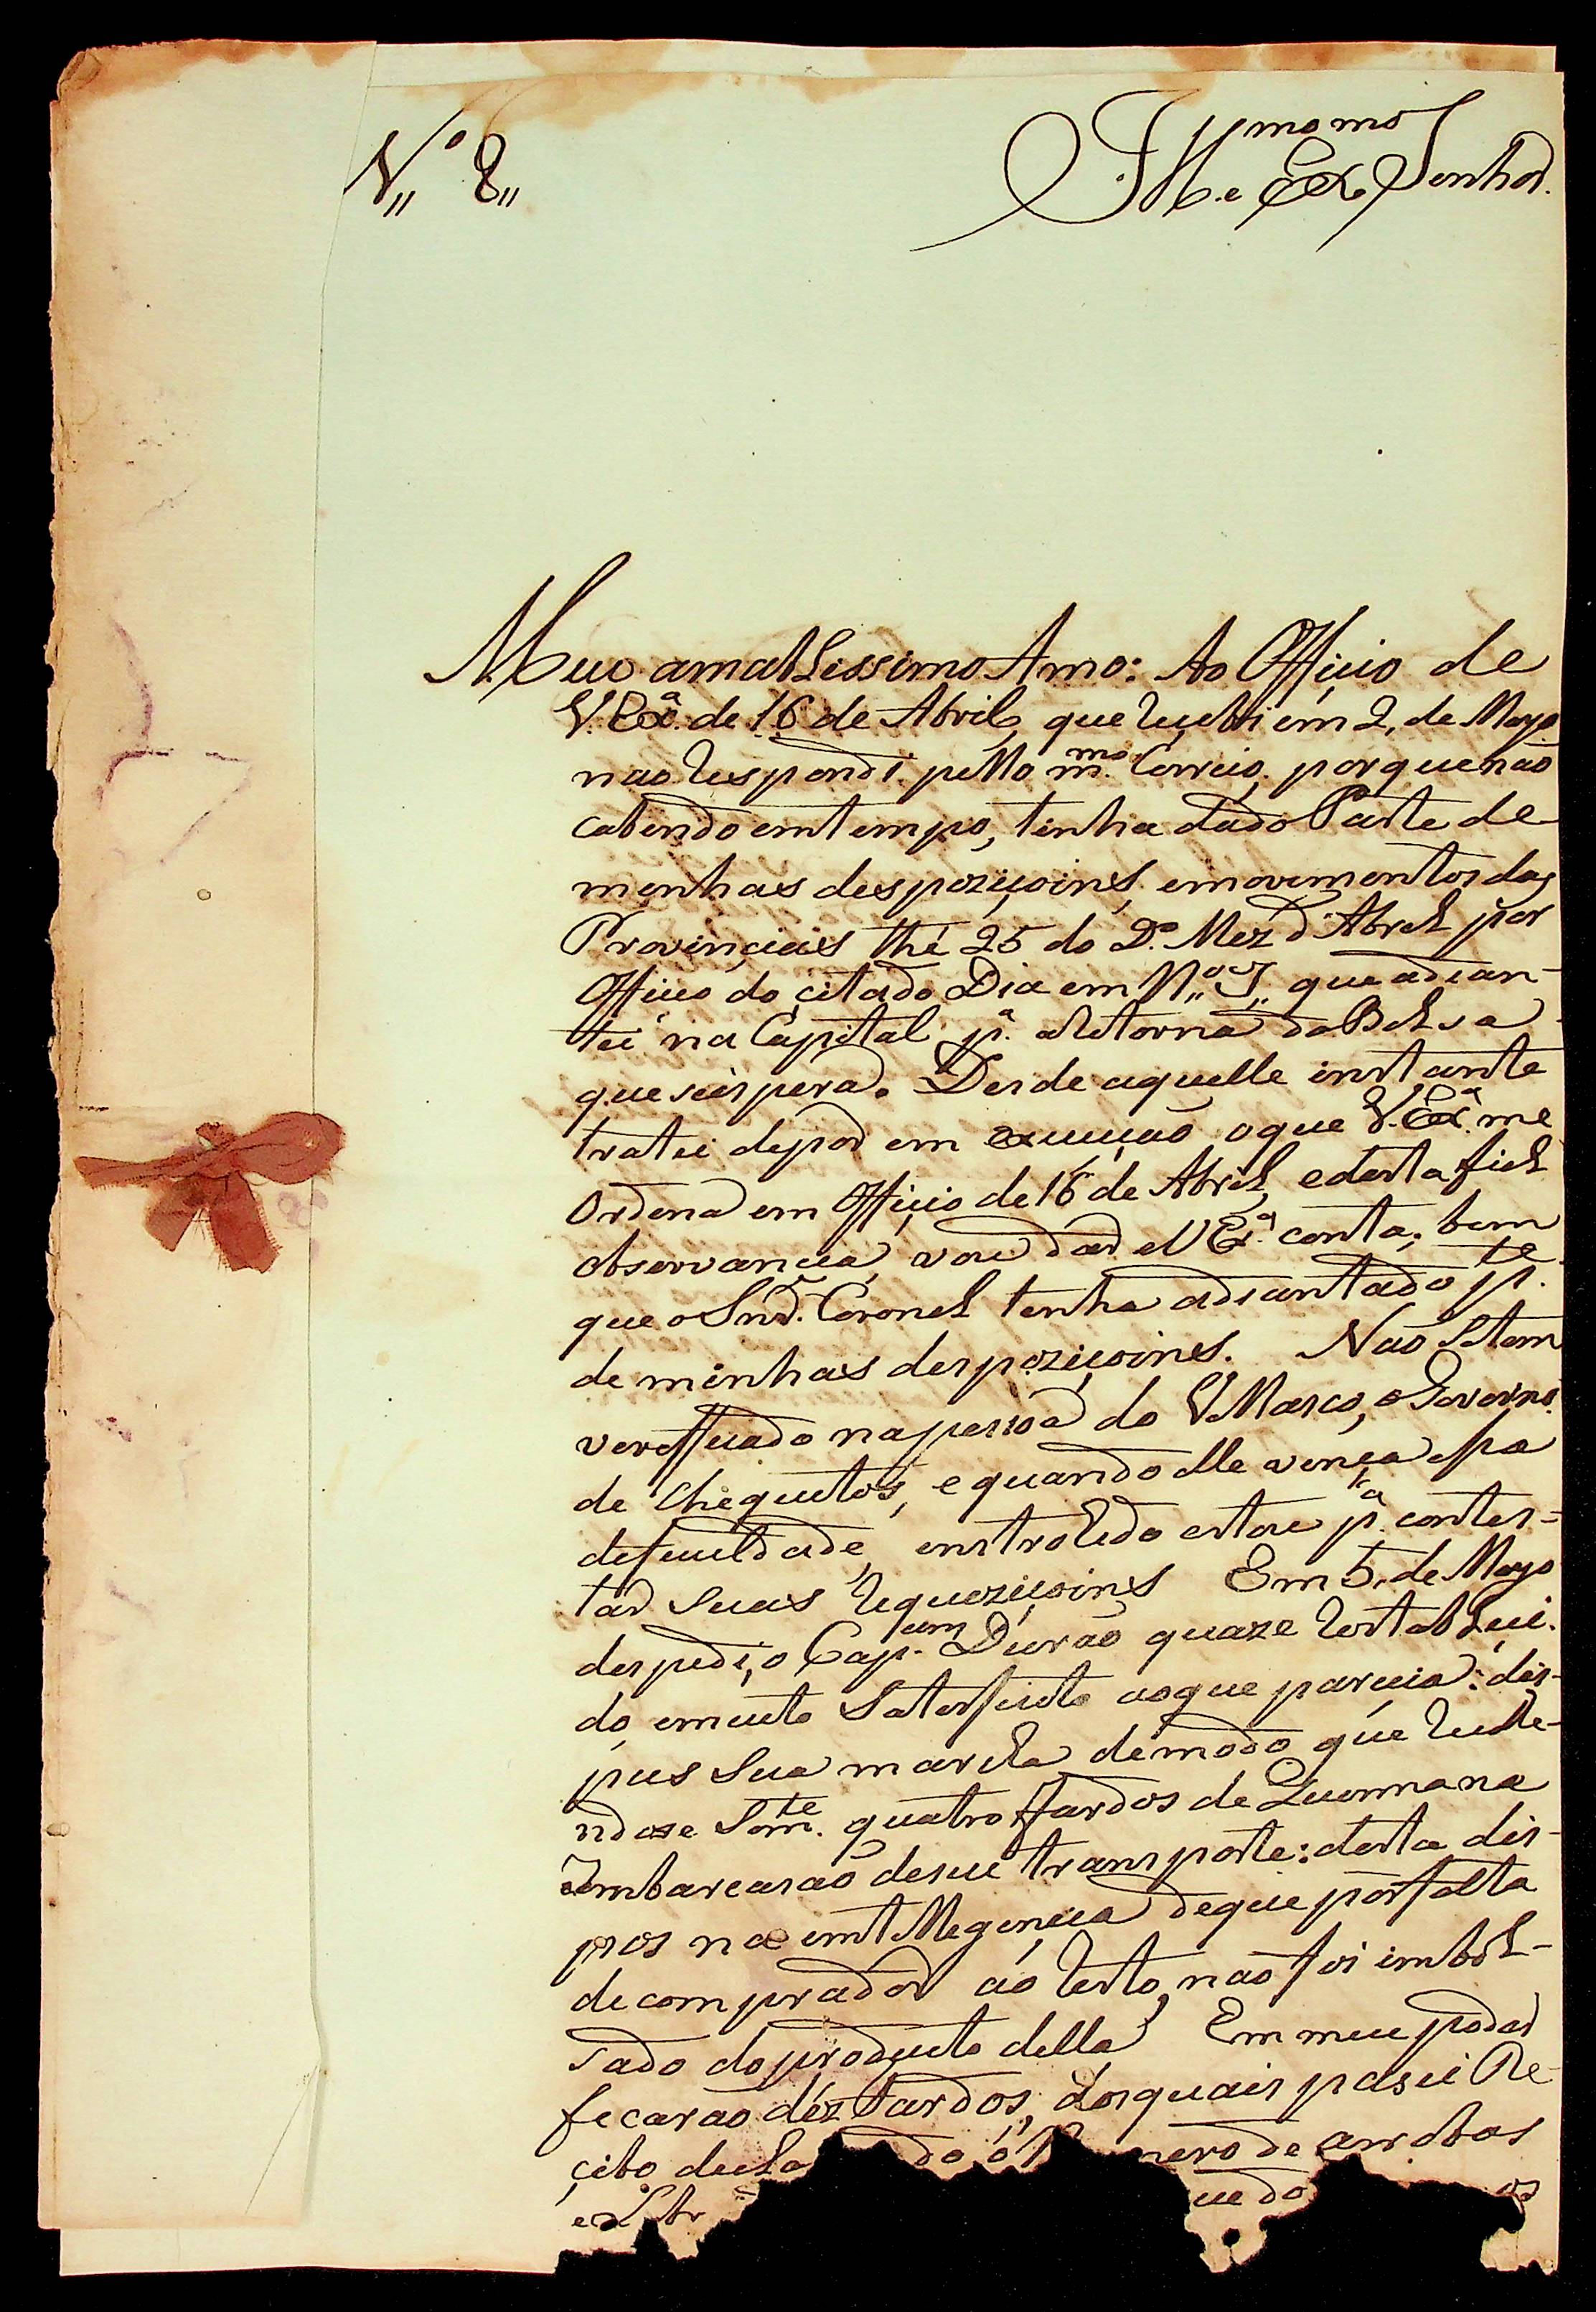 N.º 8,,
Ill.mo e Ex.mo Senhor.
Meu amablissimo Amo: Ao Officio de
V. Ex.ª de 16 de Abril, que recebi em 2, de Mayo
nao respondi pello m.mo Correio, porque não
cabendo em tempo, tinha dado Parte de
minhas despoziçoins, emovimentos das
Provinçiais thé 25 do D.º Mez d'Abril por
Officio do çitado Dia em N.º 7,, que adian-
tei na Capital p.ª a retorna da Bolsa
que seispera. Desde aquelle instante
tratei depor em execuçaõ oque V. Ex.ª me
Ordena em Officio de 16 de Abril, edesta fiel
observancia, vou dar a V Ex.ª conta; bem
que o Snr. Coronel tenha adiantado p.te
de minhas despoziçoins. Nao Sètem
vereficado napessoa do V. Marco, o Governo
de Chequitos, e quando elle vença essa
deficuldade, enstrohido estou p.ª contes-
tar Suas requeziçoins Em 5, de Mayo
despedi, o Cap.am Durão quaze restableçi-
do, emuito Satesfeito aoque pareçia: dis-
pus Sua marcha demodo que rede-
ndose Som.te quatro ffardos de Quermana
Imbarcasaõ deseu transporte: desta dis-
pos na emtelegençia deque porfalta
decomprador ao resto, naõ foi imbol-
sado do producto della Em meu poder
fecaraõ déz ffardos, dosquais pasei Re-
çibo decla do o N mero de arrobas
 ue do os